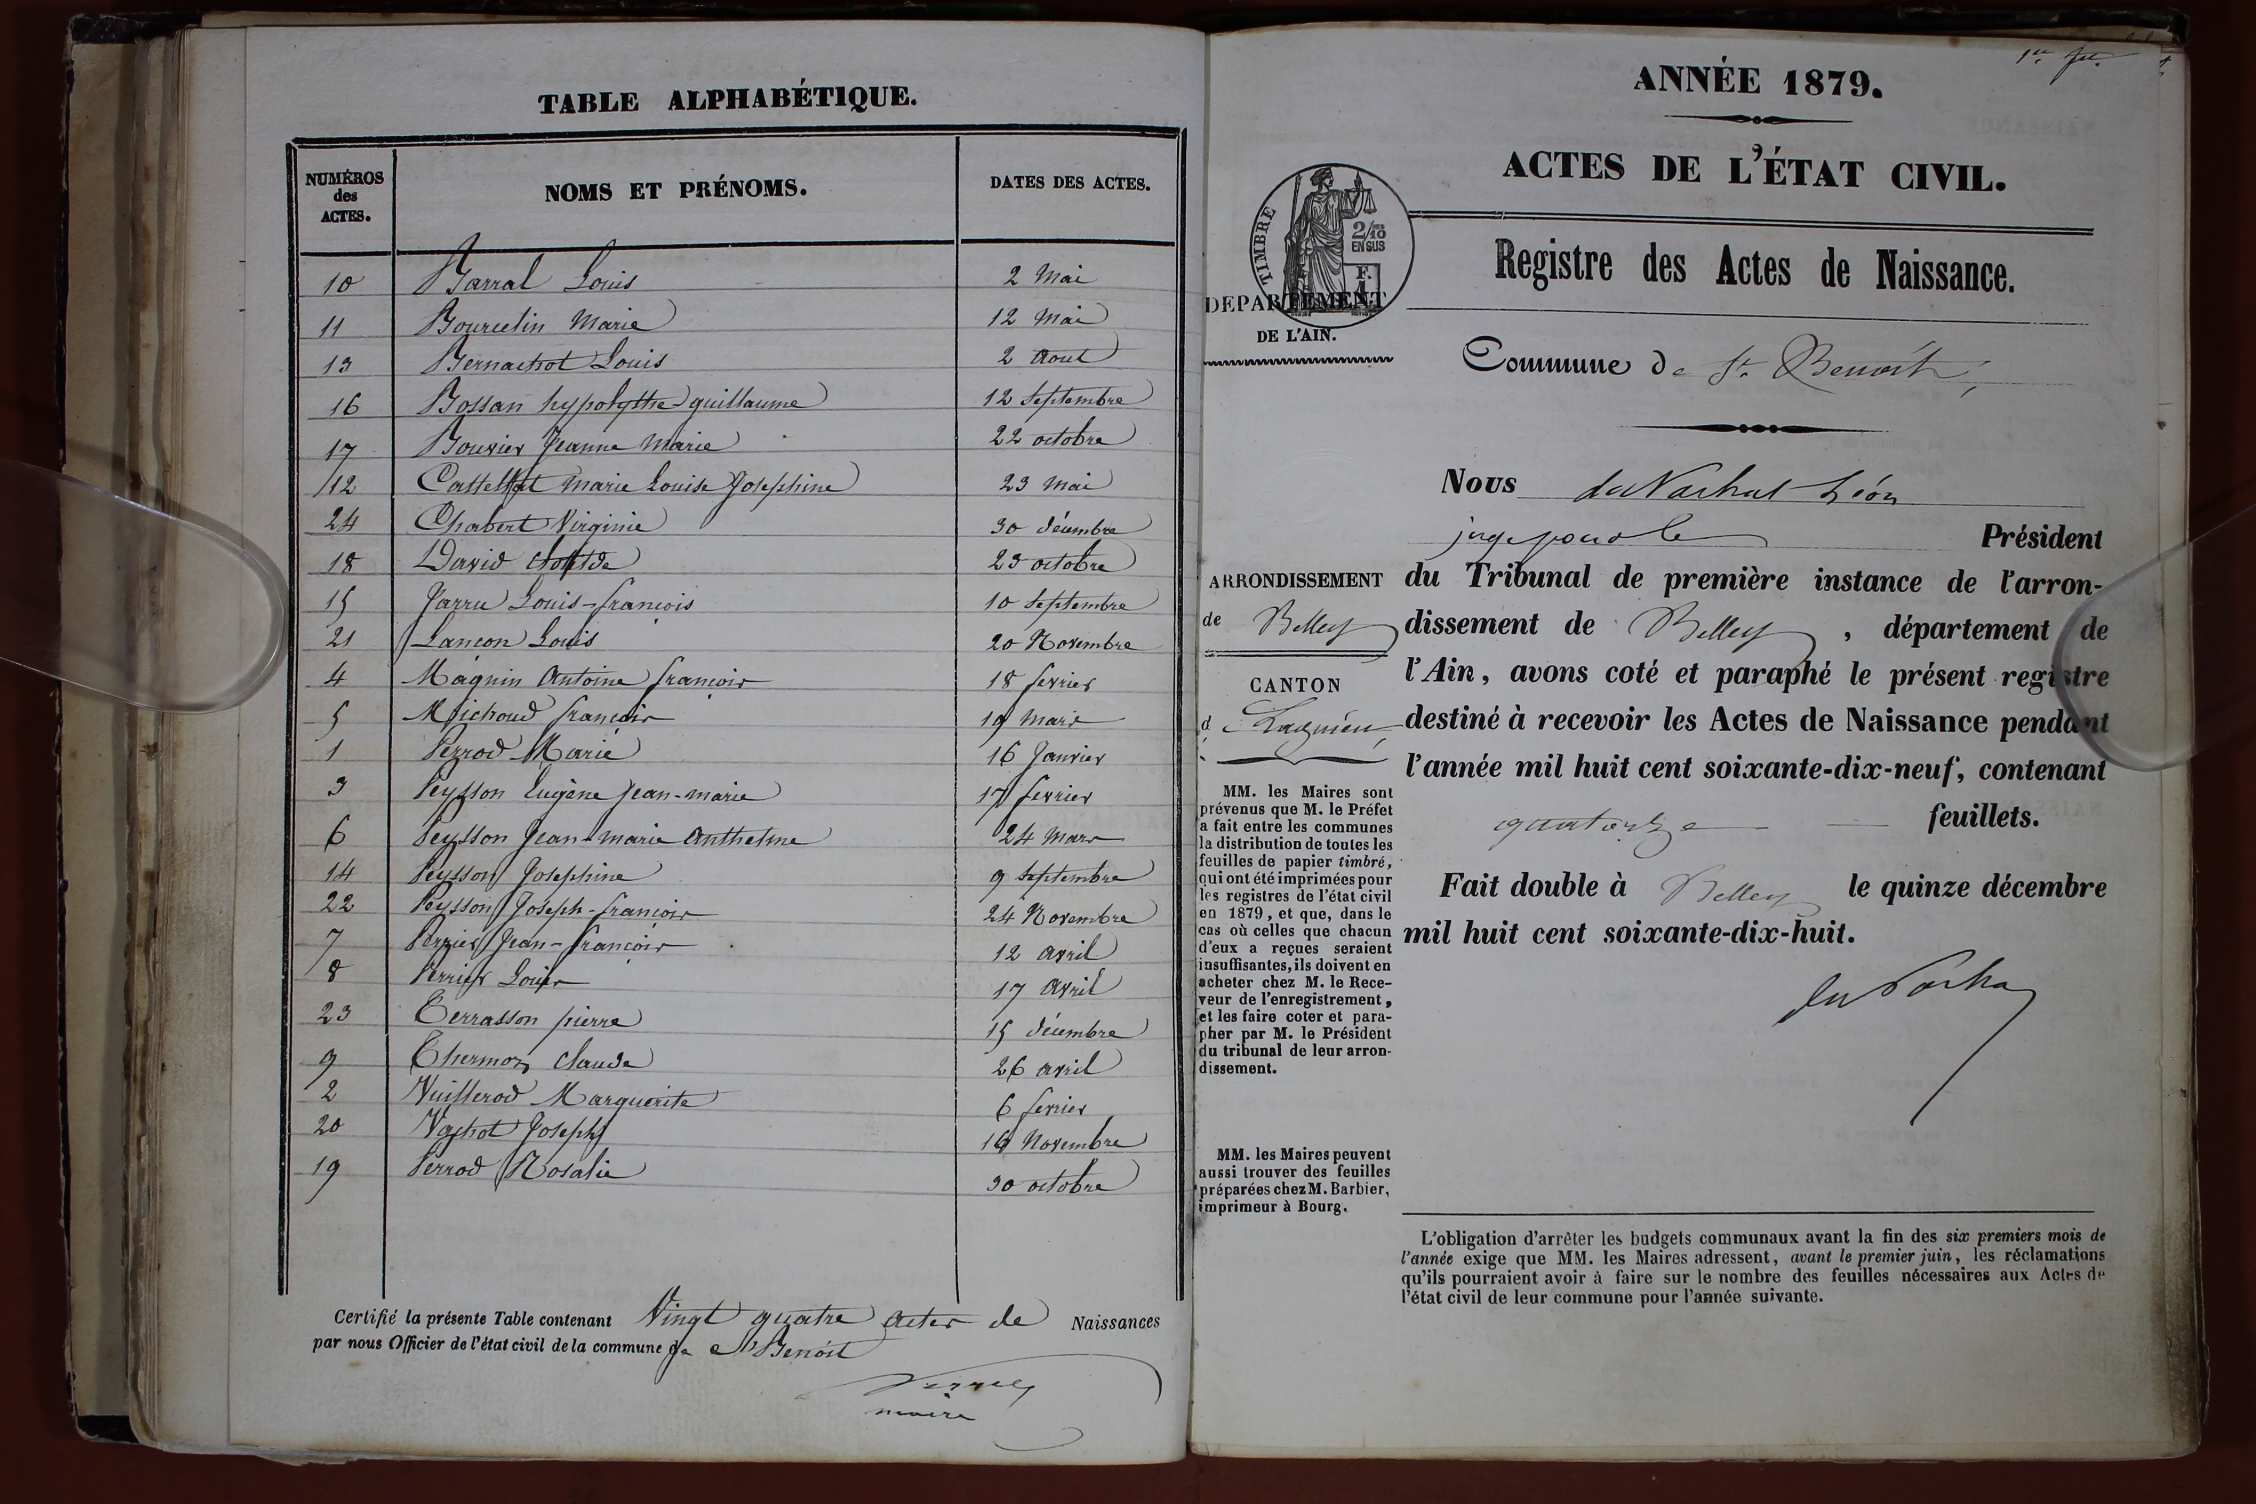 TABLE ALPHABÉTIQUE.
NUMÉROS des ACTES. NOMS ET PRÉNOMS. DATES DES ACTES.
10 Barral Louis 2 Mai
11 Bourcelin Marie 12 Mai
13 Bernachot Louis 2 Aout
16 Bossan hypolythe guillaume 12 Septembre
17 Bouvier Jeanne Marie 22 octobre
12 Marie Louise Josephine 23 Mai
24 Chabert Virginie 30 décembre
18 David 23 octobre
15 Jarru Louis-françois 10 Septembre
21 Lançon Louis 20 Novembre
4 Magnin Antoine françois 18 fevrier
5 Michoud françois 19 Mars
1 Perrod Marie 16 Janvier
3 Peysson Eugène Jean-marie 17 fevrier
6 Peysson Jean-marie Anthelme 24 Mars
14 Peysson Josephine 9 Septembre
22 Peysson Joseph-françois 24 Novembre
7 Perrier Jean-françois 12 avril
8 Perrier Louis 17 Avril
23 Terrasson pierre 15 décembre
9 Thermoz Claude 26 avril
2 Vuillerod Marguerite 6 fevrier
20 Vachot Joseph 16 Novembre
19 Perrod Rosalie 30 octobre
Certifié la présente Table contenant Vingt quatre actes de Naissances
par nous Officier de l'état civil de la commune de St Benoit
maire
1er
ANNÉE 1879.
ACTES DE L'ÉTAT CIVIL.
TIMBRE
2/10 EN SUS
F.
DEPARTEMENT
DE L'AIN.
Registre des Actes de Naissance.
Commune de St. Benoit,
ARRONDISSEMENT
de Belley
CANTON
d Lagnieu,
MM. les Maires sont
prévenus que M. le Préfet
a fait entre les communes
la distribution de toutes les
feuilles de papier timbré,
qui ont été imprimées pour
les registres de l'état civil
en 1879, et que, dans le
cas où celles que chacun
d'eux a reçues seraient
insuffisantes, ils doivent en
acheter chez M. le Rece-
veur de l'enregistrement,
et les faire coter et para-
pher par M. le Président
du tribunal de leur arron-
dissement.
MM. les Maires peuvent
aussi trouver des feuilles
préparées chez M. Barbier,
imprimeur à Bourg.
Nous Léon
juge pour le Président
du Tribunal de première instance de l'arron-
dissement de Belley, département de
l'Ain, avons coté et paraphé le présent registre
destiné à recevoir les Actes de Naissance pendant
l'année mil huit cent soixante-dix-neuf, contenant
quatorze feuillets.
Fait double à Belley le quinze décembre
mil huit cent soixante-dix-huit.
L'obligation d'arrêter les budgets communaux avant la fin des six premiers mois de
l'année exige que MM. les Maires adressent, avant le premier juin, les réclamations
qu'ils pourraient avoir à faire sur le nombre des feuilles nécessaires aux Actes de
l'état civil de leur commune pour l'année suivante.